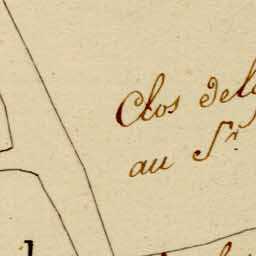 Clos de
au Sr